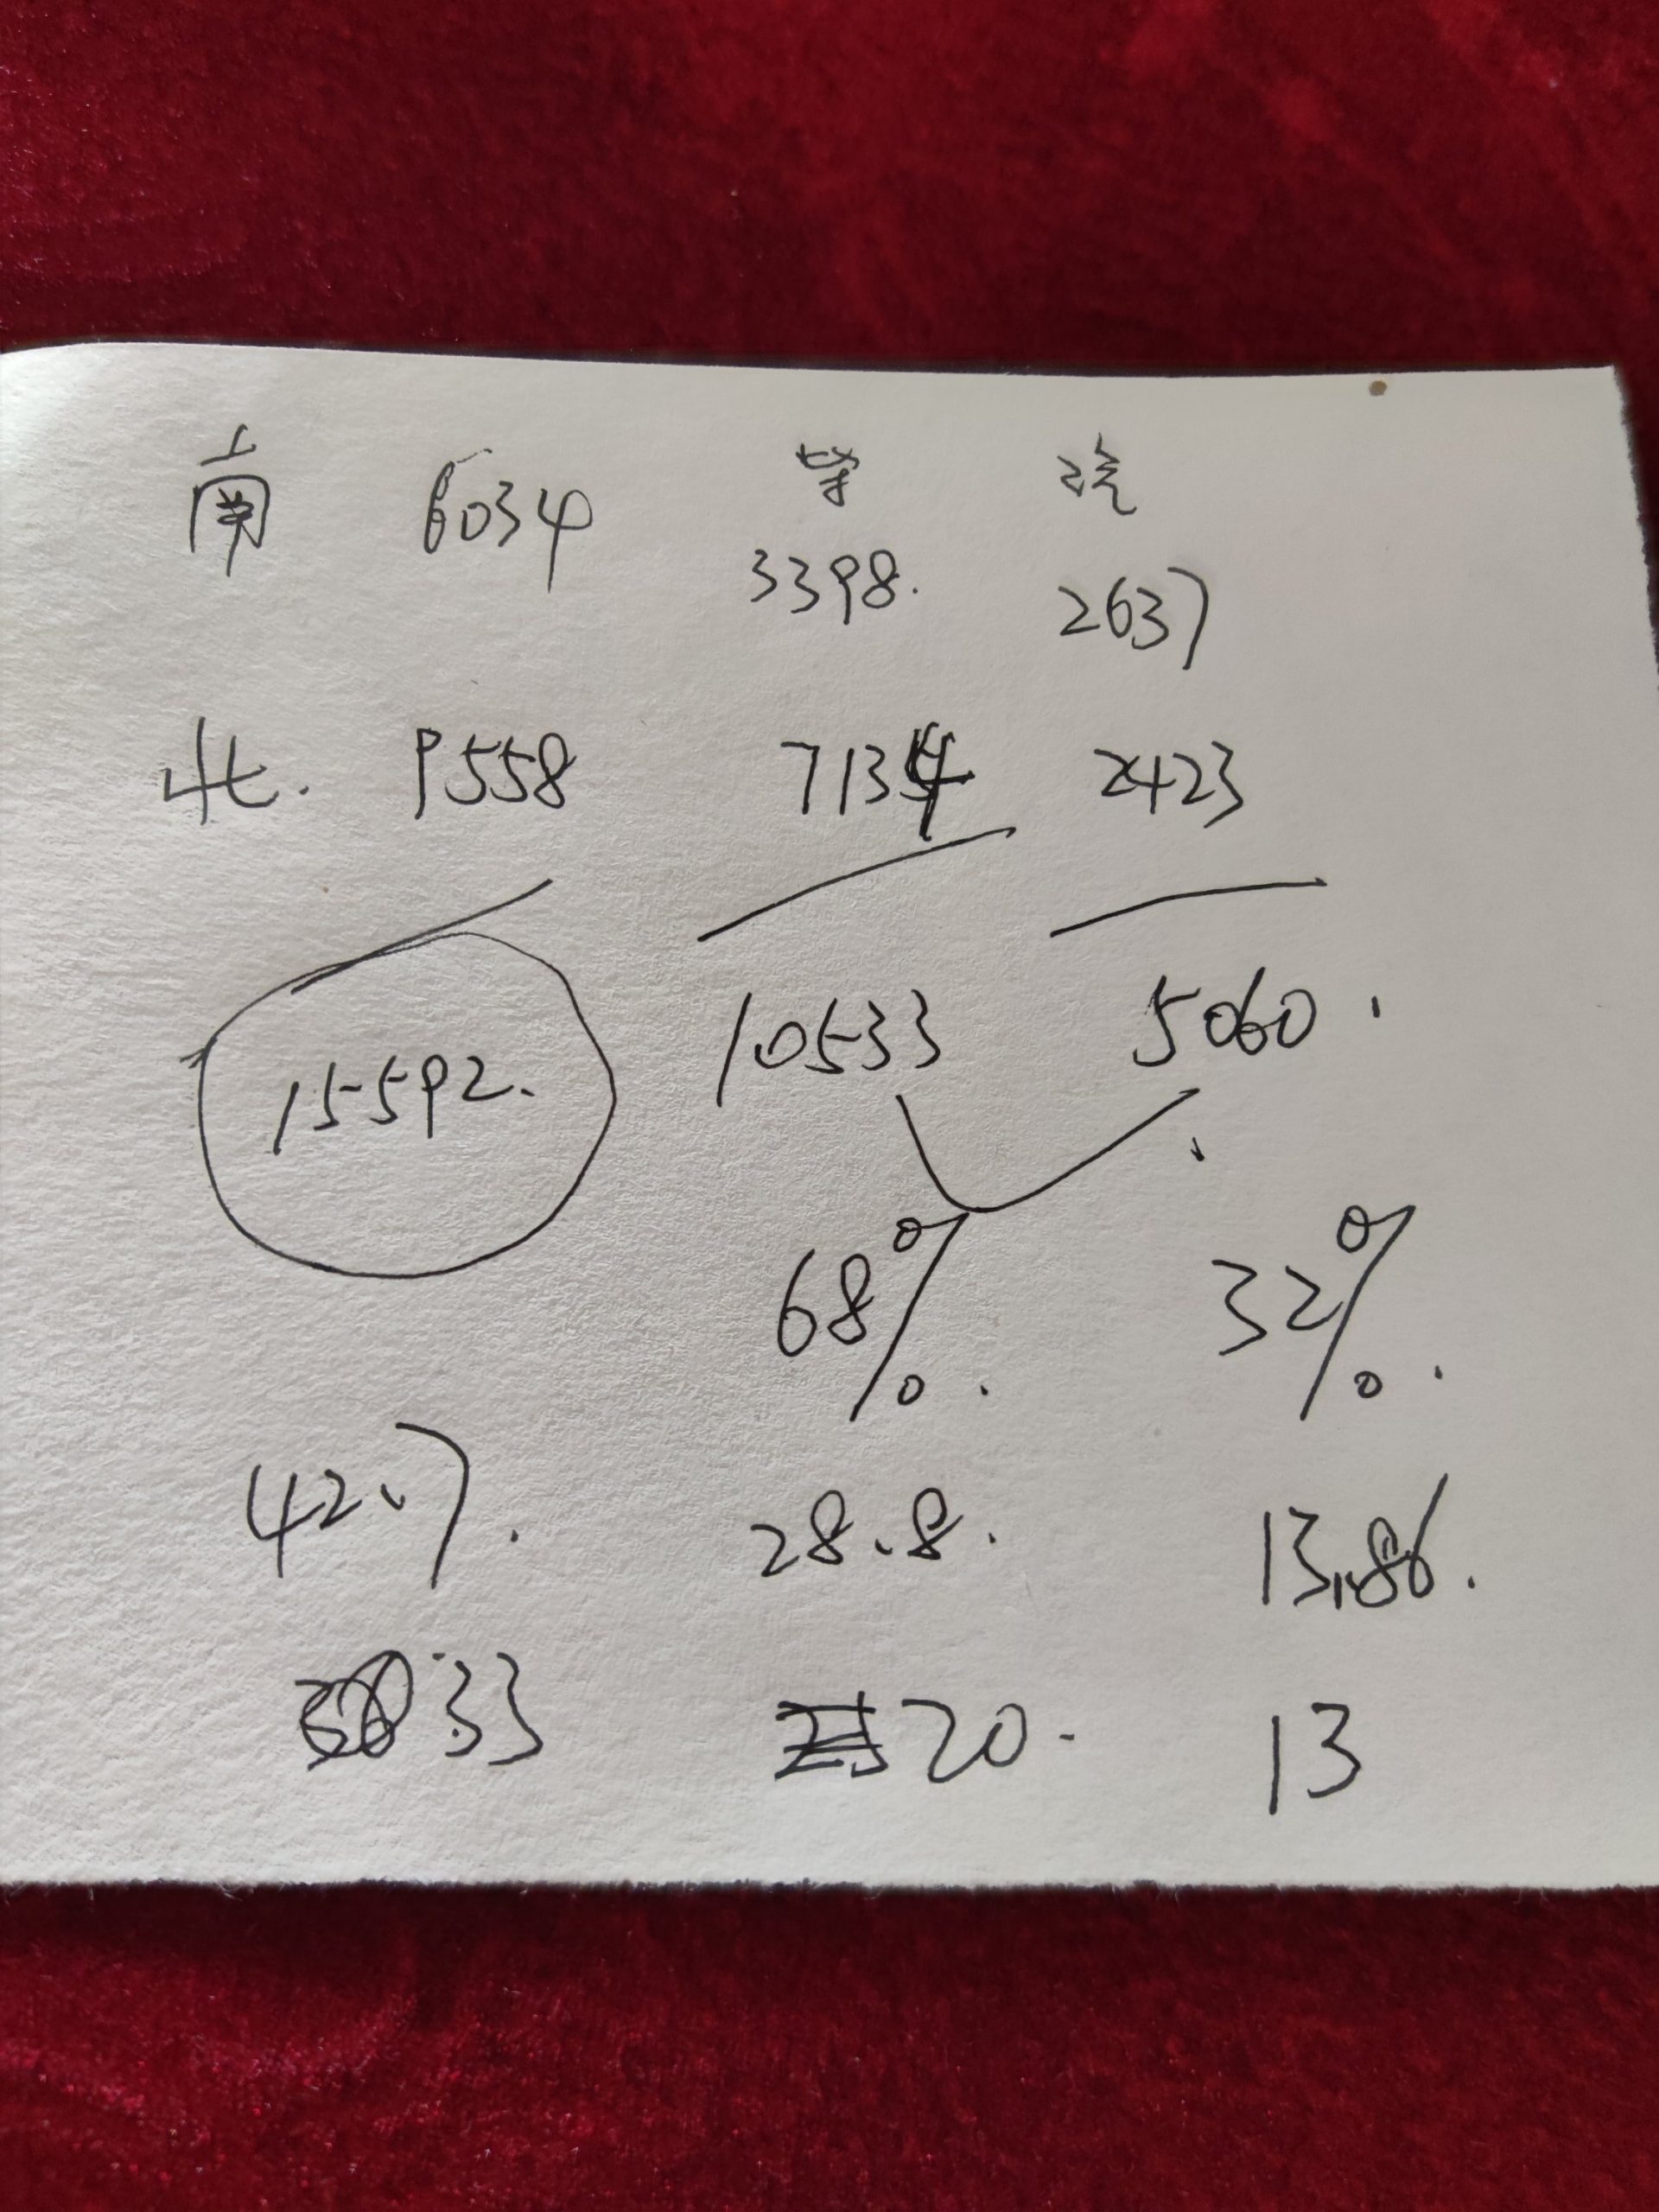 南 6034 柴 汽
3398. 2637
北. 9558 7134 2423
15592. 10533 5060.
68% . 32% .
42.7. 28.8. 13.86.
33 20. 13